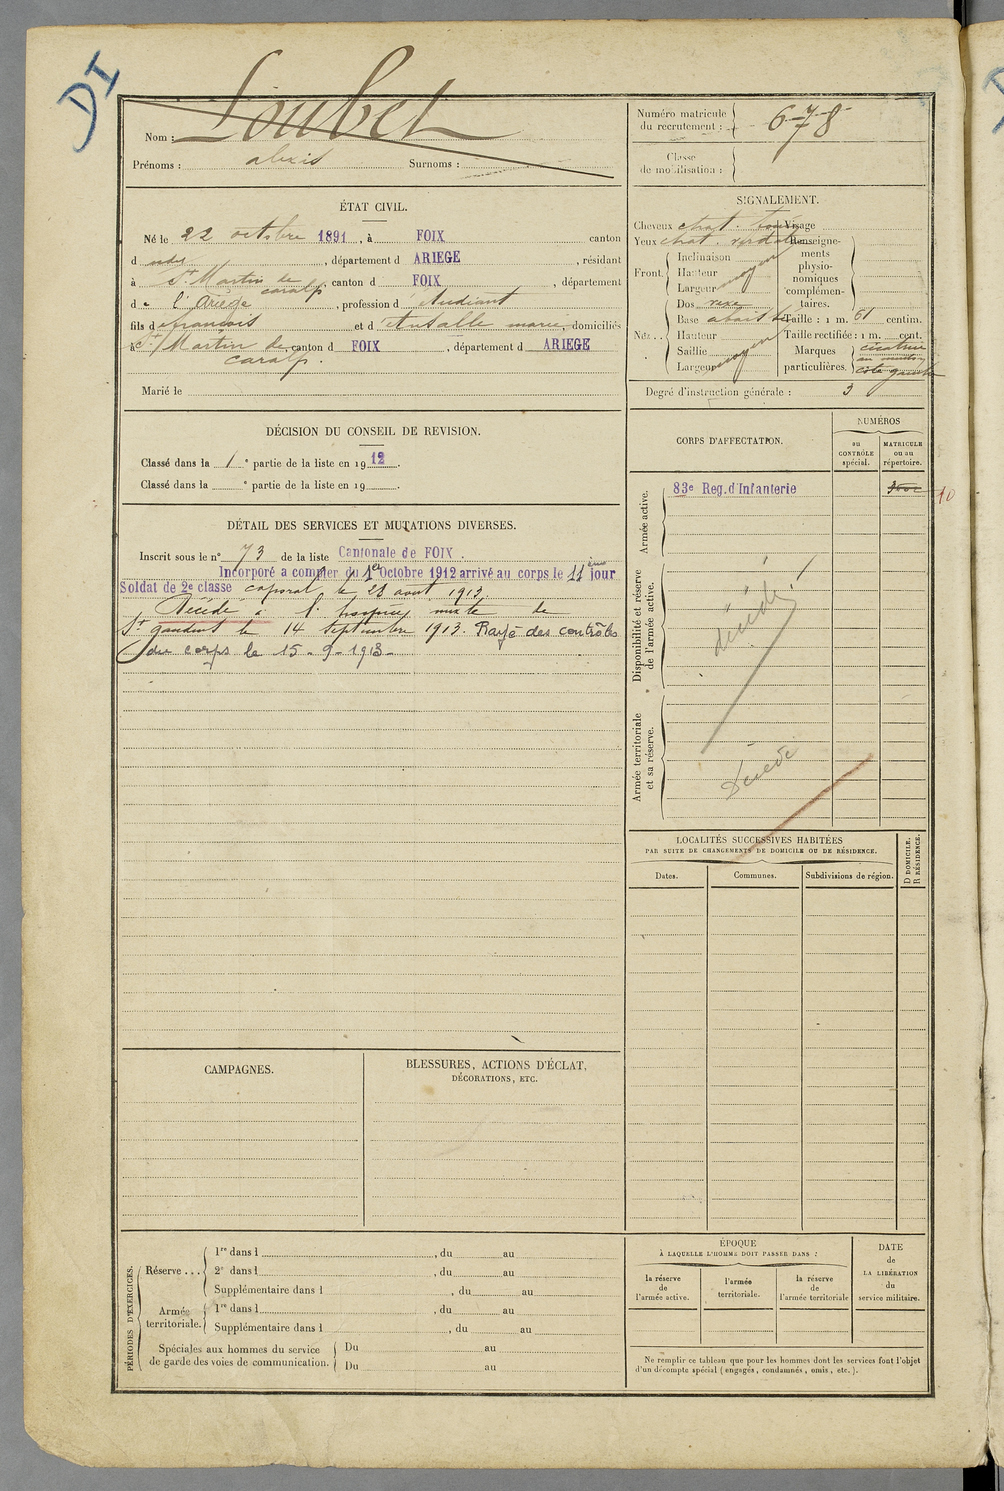 DI
Nom : Loubet
Prénoms : alexis Surnoms :
Numéro matricule
du recrutement : 678
Classe
de mobilisation :
ÉTAT CIVIL.
Né le 22 octobre 1891, à FOIX canton
d udg, département d ARIEGE, résidant
à St Martin de caralp, canton d FOIX, département
de l'Ariège, profession d'étudiant
fils de françois et d'Antalle marie, domiciliés
à St Martin de caralp. canton d FOIX, département d ARIEGE
Marié le
SIGNALEMENT.
Cheveux chat. foncé Visage
Yeux chat. verdatre
Renseigne-
ments
physio-
nomiques
complémen-
taires.
Front. Inclinaison
Hauteur moyen
Largeur
Nez... Dos rexe
Base
Hauteur
Saillie moyen
Largeur
Taille : 1 m. 61 centim.
Taille rectifiée : 1 m. cent.
Marques
particulières. cicatrice
au menton
côté gauche
Degré d'instruction générale : 3
DÉCISION DU CONSEIL DE REVISION.
Classé dans la 1e partie de la liste en 1912.
Classé dans la e partie de la liste en 19 .
CORPS D'AFFECTATION.
NUMÉROS
au
CONTRÔLE
spécial.
MATRICULE
ou au
répertoire.
Armée active.
83e Reg. d'Infanterie
10
Disponibilité et réserve
de l'armée active.
décédé
Armée territoriale
et sa réserve.
Décédé
DÉTAIL DES SERVICES ET MUTATIONS DIVERSES.
Inscrit sous le n° 73 de la liste Cantonale de FOIX.
Incorporé a compter du 1er Octobre 1912 arrivé au corps le 11 jour
Soldat de 2e classe caporal le 28 aout 1913.
Décédé à l'hospice mixte de
St gaudens le 14 septembre 1913. Rayé des contrôles
du corps le 15-9-1913-
LOCALITÉS SUCCESSIVES HABITÉES
PAR SUITE DE CHANGEMENTS DE DOMICILE OU DE RÉSIDENCE.
D DOMICILE.
R RÉSIDENCE.
Dates. Communes. Subdivisions de région.
CAMPAGNES.
BLESSURES, ACTIONS D'ÉCLAT,
DÉCORATIONS, ETC.
PÉRIODES D'EXERCICES.
Réserve ... 1re dans l , du au
2e dans l , du au
Supplémentaire dans l , du au
Armée
territoriale. 1re dans l , du au
Supplémentaire dans l , du au
Spéciales aux hommes du service
de garde des voies de communication.
Du au
Du au
ÉPOQUE
À LAQUELLE L'HOMME DOIT PASSER DANS :
la réserve
de
l'armée active.
l'armée
territoriale.
la réserve
de
l'armée territoriale
DATE
de
LA LIBÉRATION
du
service militaire.
Ne remplir ce tableau que pour les hommes dont les services font l'objet
d'un décompte spécial (engagés, condamnés, omis, etc.).